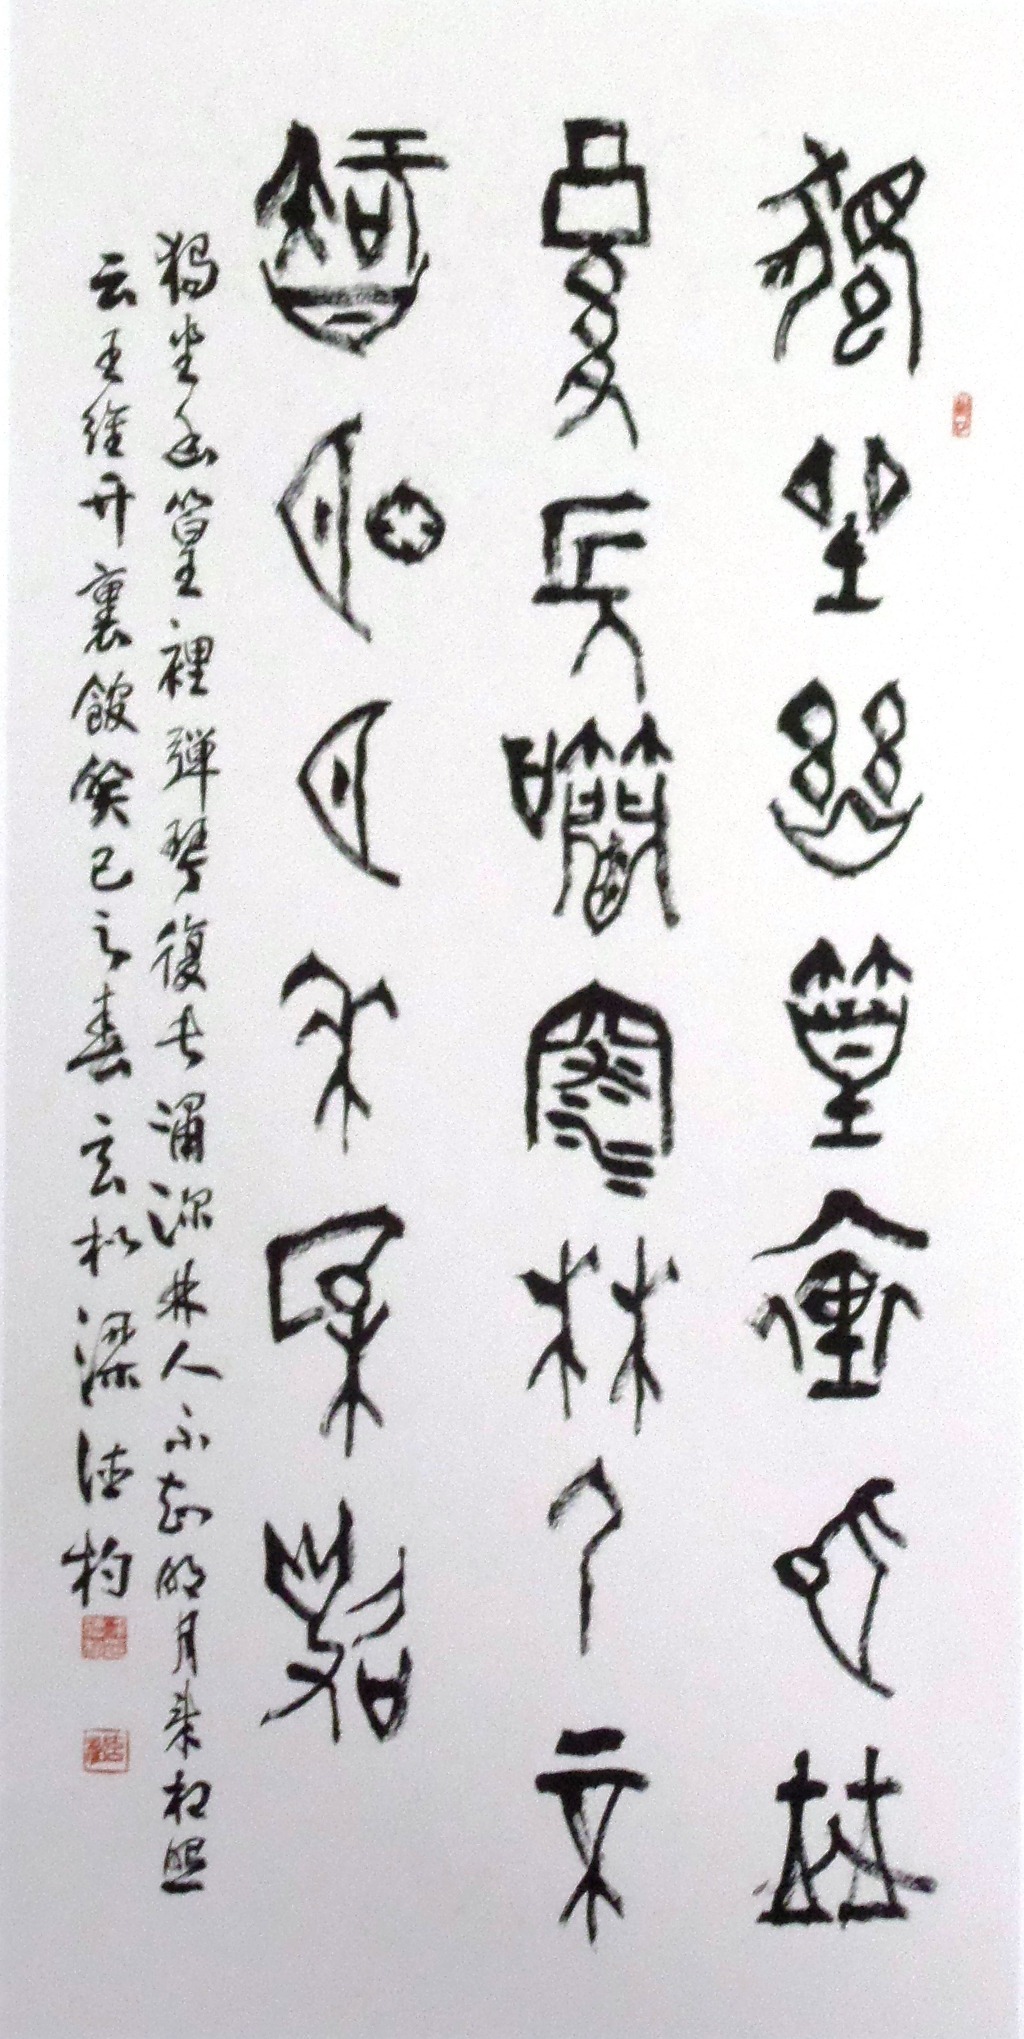 獨坐幽篁裏彈琴
復長嘯深林人不
知明月來相照
獨坐幽篁裡彈琴復長嘯深林人不知明月來相照
云王維竹裏館癸巳之春玄松梁